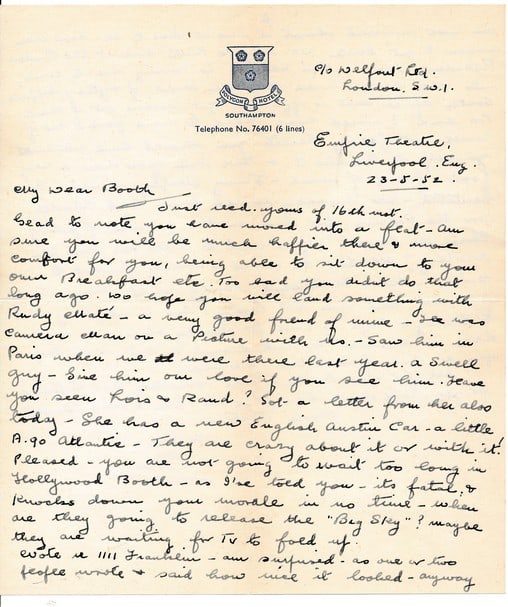 POLYGON HOTEL
SOUTHAMPTON
Telephone No. 76401 (6 lines)
c/o Welfont Rd.
London. S.W.1.
Empire Theatre,
Liverpool. Eng.
23-5-52.
My Dear Booth
Just recd. yours of 16th inst.
Glad to note you have moved into a flat - am
sure you will be much happier there & more
comfort for you, being able to sit down to you
own Breakfast etc. Too bad you didn't do that
long ago. We hope you will land something with
Rudy Maté - a very good friend of mine - He was
Camera Man on a Picture with us. - Saw him in
Paris when we were there last year. a Swell
guy - Give him our love if you see him. Have
you seen Lois & Rand? Got a letter from her also
today - She has a new English Austin Car - a little
A.90 Atlantic - They are crazy about it or with it!
Pleased - you are not going to wait too long in
Hollywood Booth - as I've told you - its fatal, &
Knocks down your morale in no time - when
are they going to release the "Big Sky"? maybe
they are waiting for TV to fold up.
Note re 1111 Franklin - am surprised - as one or two
people wrote & said how nice it looked - anyway